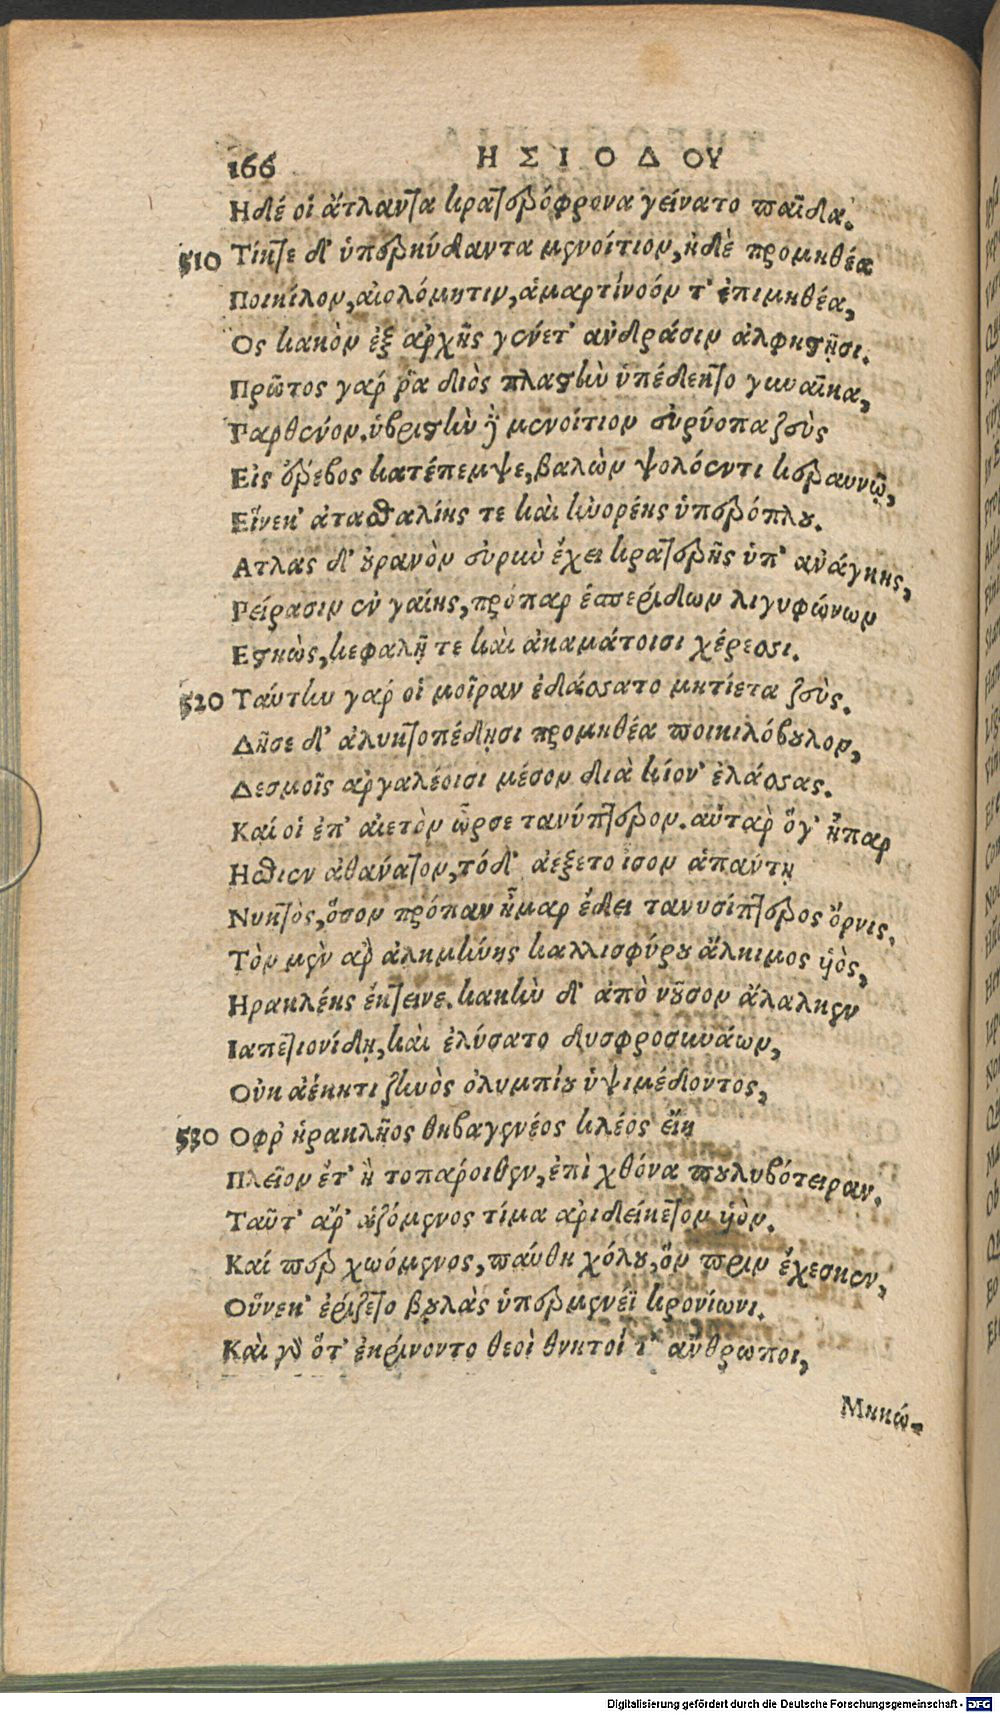 166 ΗΣΙΟΔΟΥ
Ηδέ οἱ ἄτλαντα κρατερόφρονα γείνατο παῖδα.
510 Τίκτε δ' ὑπερκύδαντα μενοίτιον, ἠδὲ προμηθέα
Ποικίλον, αἰολόμητιν, ἁμαρτίνοόν τ' ἐπιμηθέα,
Ος κακὸν ἐξ ἀρχῆς γένετ' ἀνδράσιν ἀλφηστῇσι.
Πρῶτος γάρ ῥα διὸς πλαστὴν ὑπέδεκτο γυναῖκα,
Παρθένον. ὑβριστὴν δὲ μενοίτιον εὐρύοπα ζεὺς
Εἰς ἔρεβος κατέπεμψε, βαλὼν ψολόεντι κεραυνῷ,
Εἵνεκ' ἀτασθαλίης τε καὶ ἠνορέης ὑπερόπλου.
Ατλας δ' οὐρανὸν εὐρὺν ἔχει κρατερῆς ὑπ' ἀνάγκης,
Πείρασιν ἐν γαίης, πρόπαρ ἑσπερίδων λιγυφώνων
Εστηὼς, κεφαλῇ τε καὶ ἀκαμάτοισι χέρεσσι.
520 Ταύτην γάρ οἱ μοῖραν ἐδάσσατο μητίετα ζεὺς.
Δῆσε δ' ἀλυκτοπέδῃσι προμηθέα ποικιλόβουλον,
Δεσμοῖς ἀργαλέοισι μέσον διὰ κίον' ἐλάσσας.
Καί οἱ ἐπ' αἰετὸν ὦρσε τανύπτερον. αὐτὰρ ὅγ' ἧπαρ
Ησθιεν ἀθάνατον, τόδ' ἀέξετο ἶσον ἁπάντῃ
Νυκτὸς, ὅσον πρόπαν ἦμαρ ἔδει τανυσίπτερος ὄρνις,
Τὸν μὲν ἄρ ἀλκμήνης καλλισφύρου ἄλκιμος υἱὸς,
Ηρακλέης ἔκτεινε. κακὴν δ' ἀπὸ νοῦσον ἄλαλκεν
Ιαπετιονίδῃ, καὶ ἐλύσατο δυσφροσυνάων,
Οὐκ ἀέκητι ζηνὸς ὀλυμπίου ὑψιμέδοντος,
530 Οφρ ἡρακλῆος θηβαγενέος κλέος εἴη
Πλεῖον ἔτ' ἢ τοπάροιθεν, ἐπὶ χθόνα πουλυβότειραν.
Ταῦτ' ἄρ' ἁζόμενος τίμα ἀριδείκετον υἱὸν.
Καί περ χωόμενος, παύθη χόλου, ὃν πρὶν ἔχεσκεν,
Οὕνεκ' ἐρίζετο βουλὰς ὑπερμενέϊ κρονίωνι.
Καὶ γὰρ ὅτ' ἐκρίνοντο θεοὶ θνητοί τ' ἄνθρωποι,
Μηκώ-
Digitalisierung gefördert durch die Deutsche Forschungsgemeinschaft - DFG